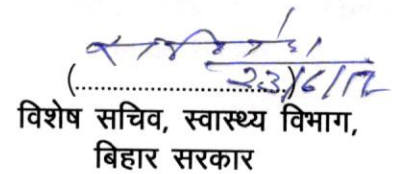 (..............................)
23/6/12
विशेष सचिव, स्वास्थ्य विभाग,
बिहार सरकार